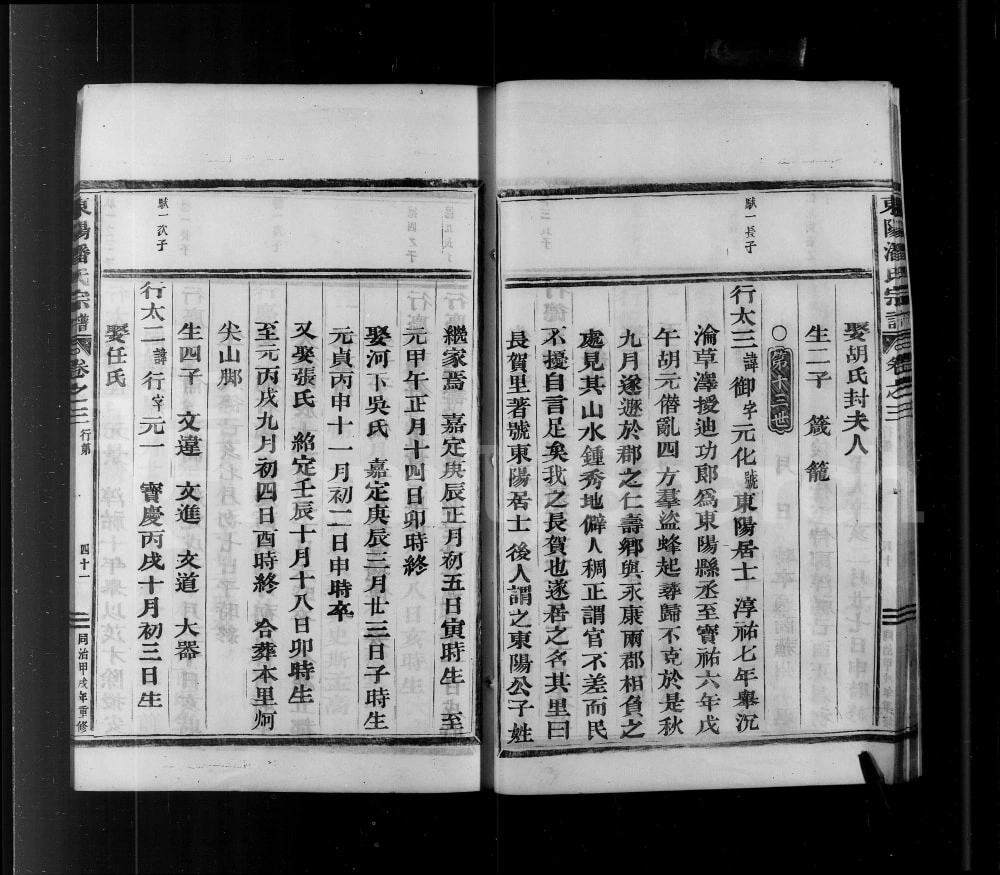 東陽潘氏宗譜
卷之三
娶胡氏封夫人
生二子 箴 籠
○第十三世
馱一長子
行太三諱御字元化號東陽居士 淳祐七年舉沉
淪草澤授迪功郎爲東陽縣丞至寶祐六年戊
午胡元僭亂四方羣盜蜂起莽歸不克於是秋
九月遂遯於郡之仁壽鄉與永康兩郡相負之
處見其山水鍾秀地僻人稠正謂官不差而民
不擾自言足矣我之長賀也遂居之名其里曰
長賀里著號東陽居士 後人謂之東陽公子姓
繼家焉 嘉定庚辰正月初五日寅時生 至
元甲午正月十四日卯時終
娶河下吳氏 嘉定庚辰三月廿三日子時生
元貞丙申十一月初二日申時卒
又娶張氏 紹定壬辰十月十八日卯時生
至元丙戌九月初四日酉時終 合葬本里坷
尖山脚
生四子 文達 文進 文道 大器
馱一次子
行太二諱行字元一 寶慶丙戌十月初三日生
娶任氏
東陽潘氏宗譜
卷之三
行第
四十一
同治甲戌年重修